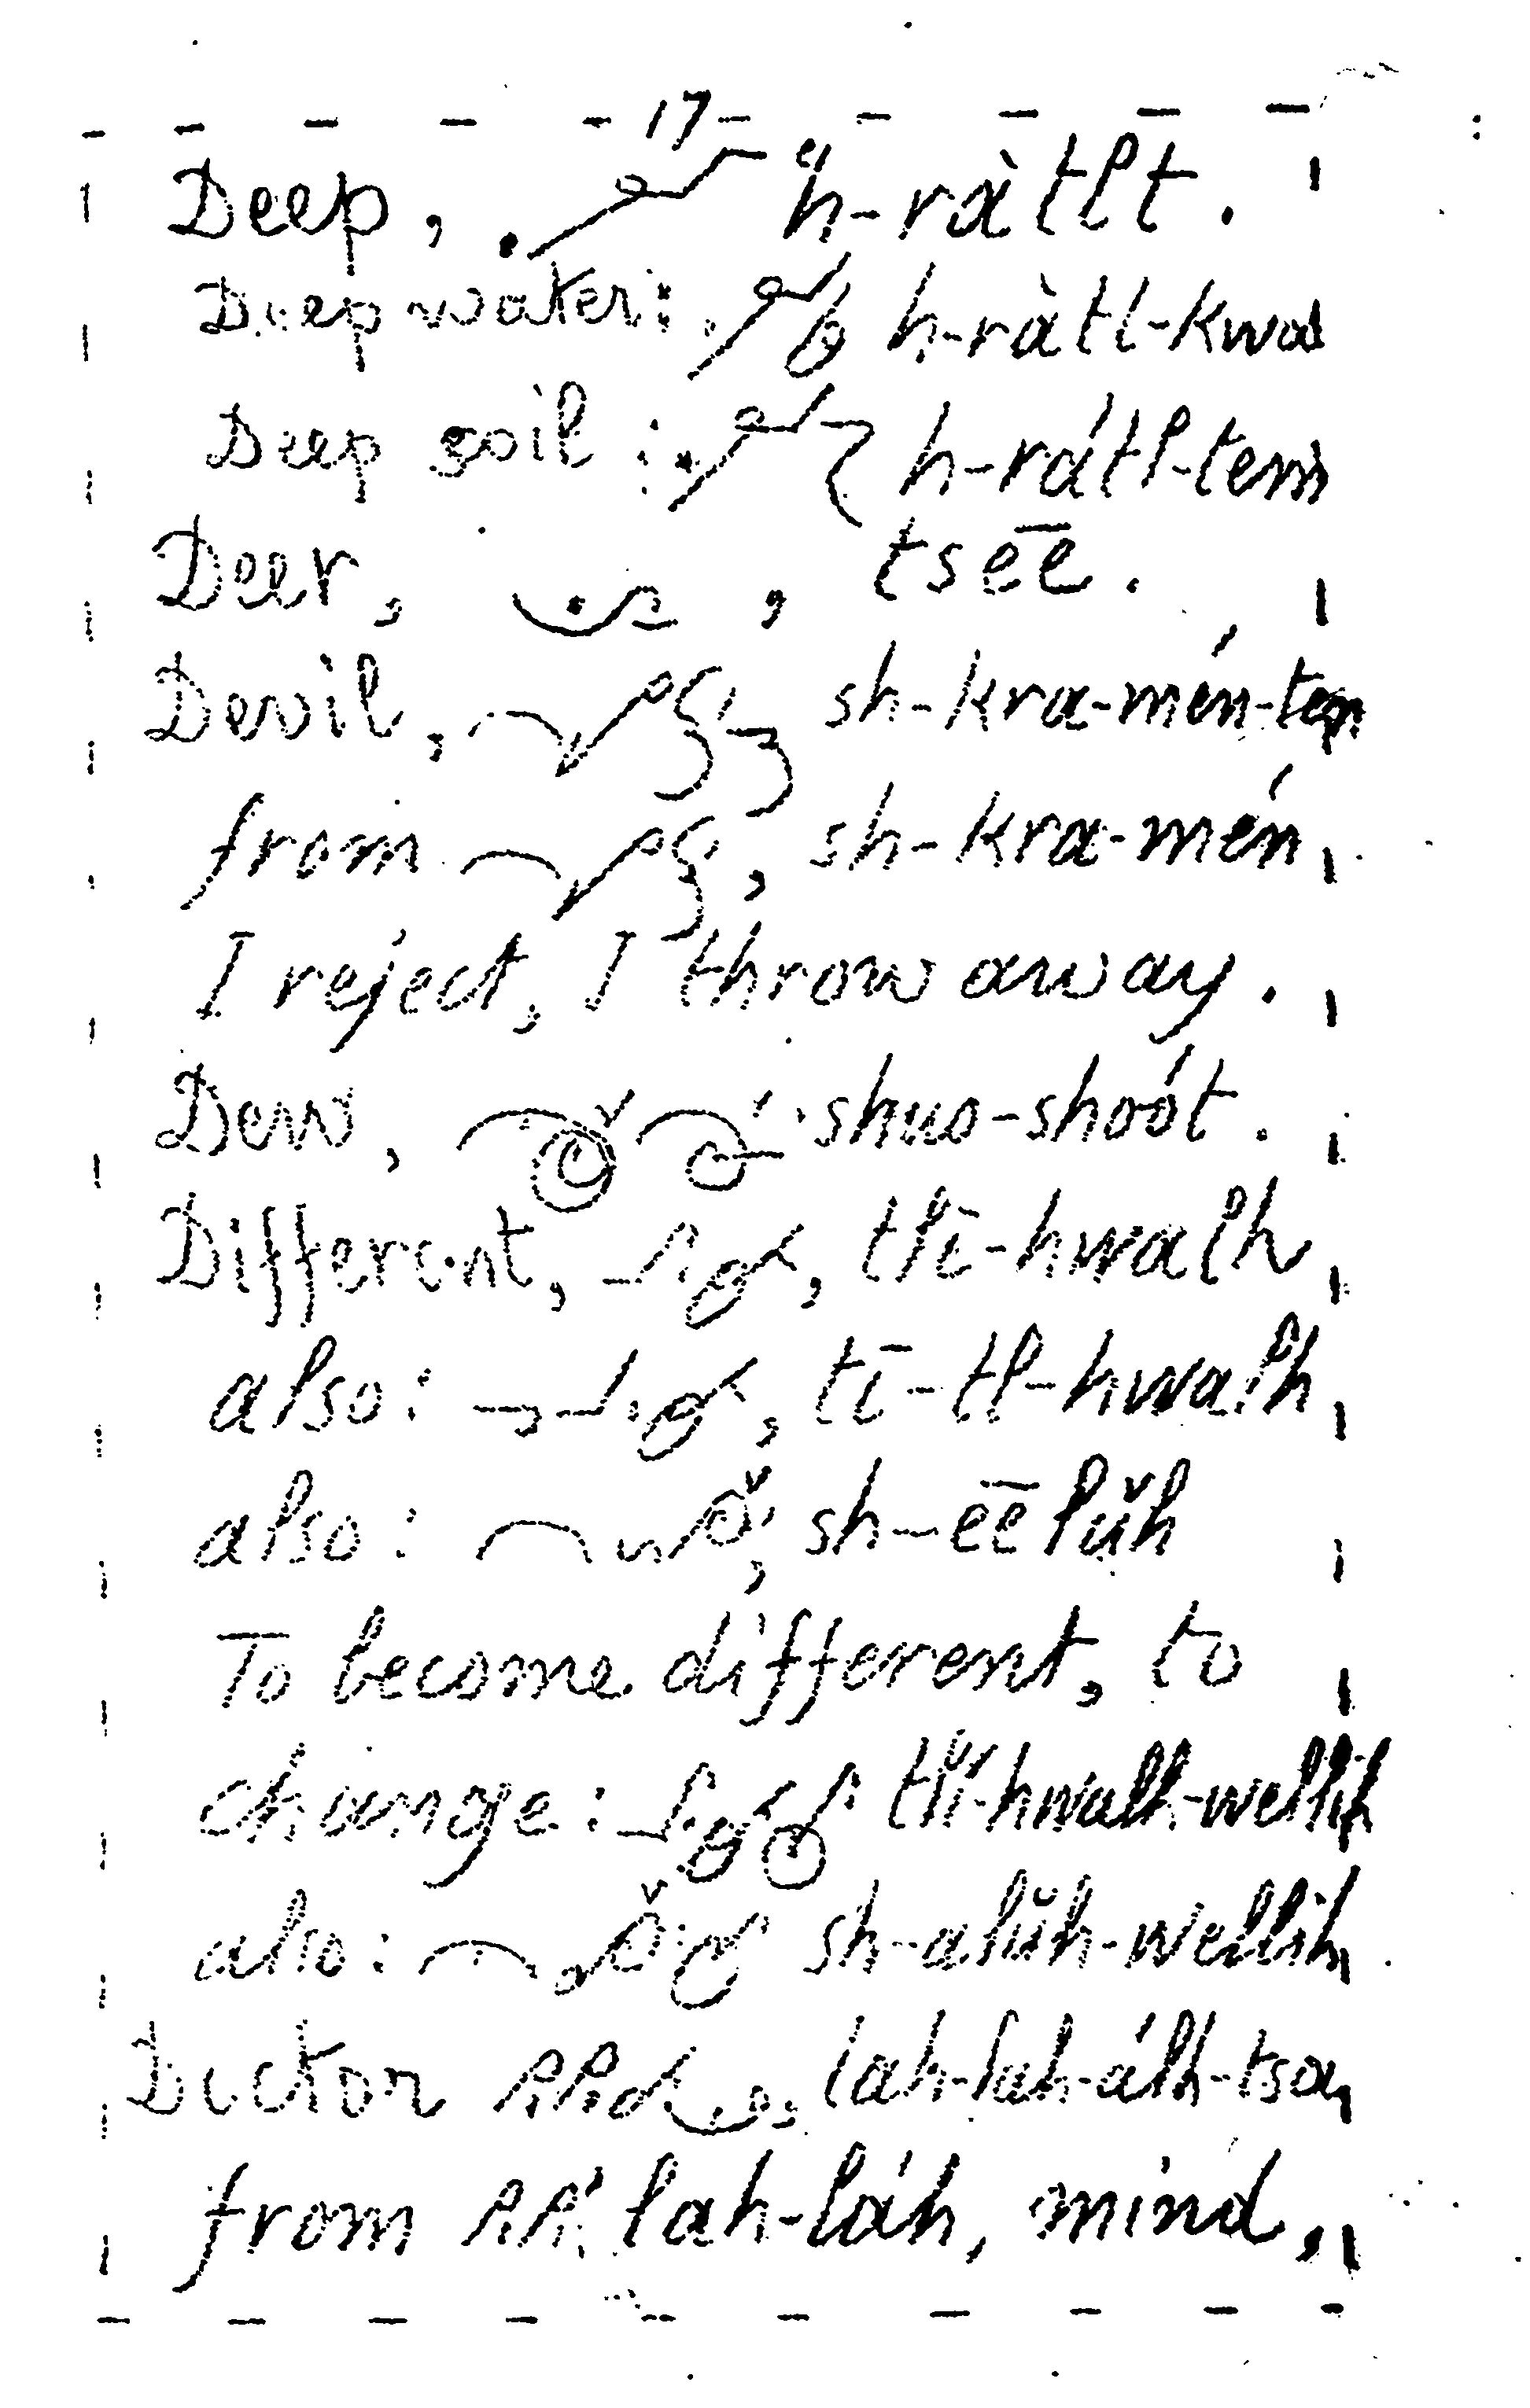 17
Deep, h-ràtlt.
Deep water: h-ràtl-kwa
Deep soil: h-rátl-tem
Deer, tsēē.
Devil, sh-kra-mén-tem
from sh-kra-mén,
I reject, I throw away.
Dew, shuo-shoót.
Different, tlī-hwalh,
also: tī-tl-hwalh,
also: sh-ēēlŭh
To become different, to
change: tli-hwalh-wellih
also: sh-alŭh-wellih.
Doctor lah-lah-álh-tsa,
from lah-láh, mind,